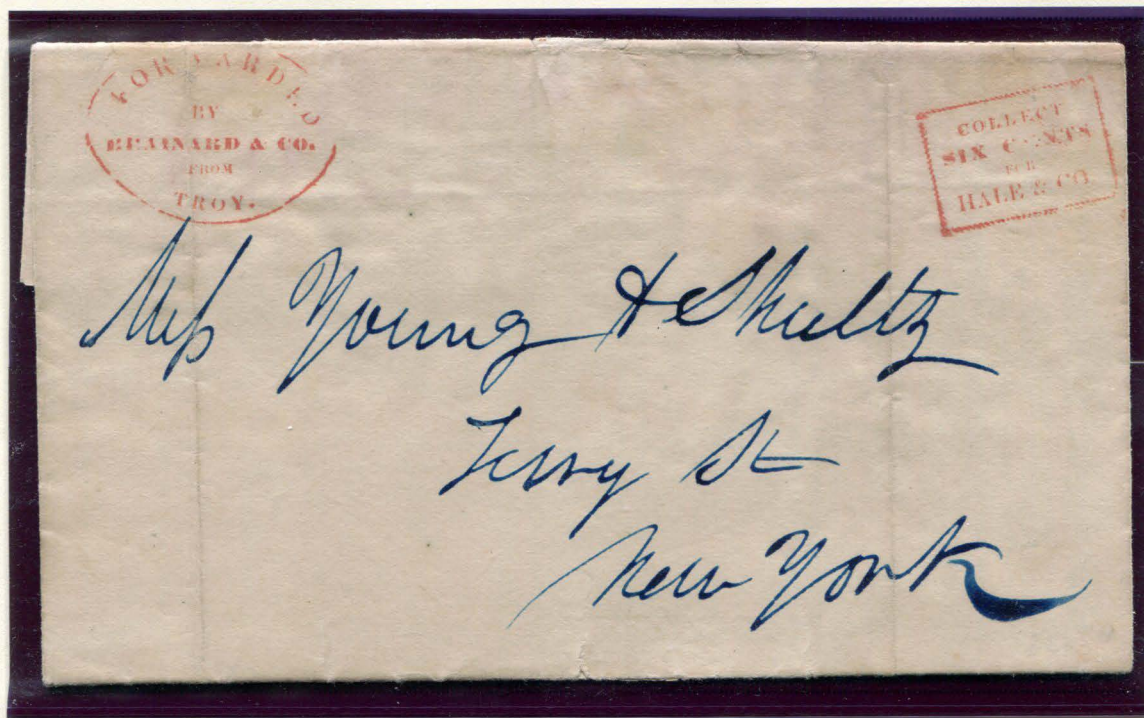 FORWARDED
BY
BRAINARD & CO.
FROM
TROY.
COLLECT
SIX CENTS
FOR
HALE & CO
Mess Young & Shultz
Ferry St
New York